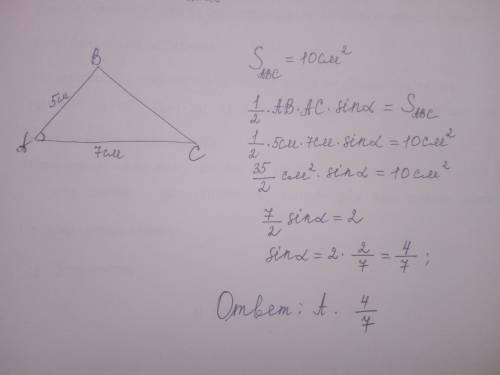 B
5см
A
7см
C
S_ABC = 10см²
1/2 · AB · AC · sinα = S_ABC
1/2 · 5см · 7см · sinα = 10см²
35/2 см² · sinα = 10см²
7/2 sinα = 2
sinα = 2 · 2/7 = 4/7 ;
Ответ: А. 4/7